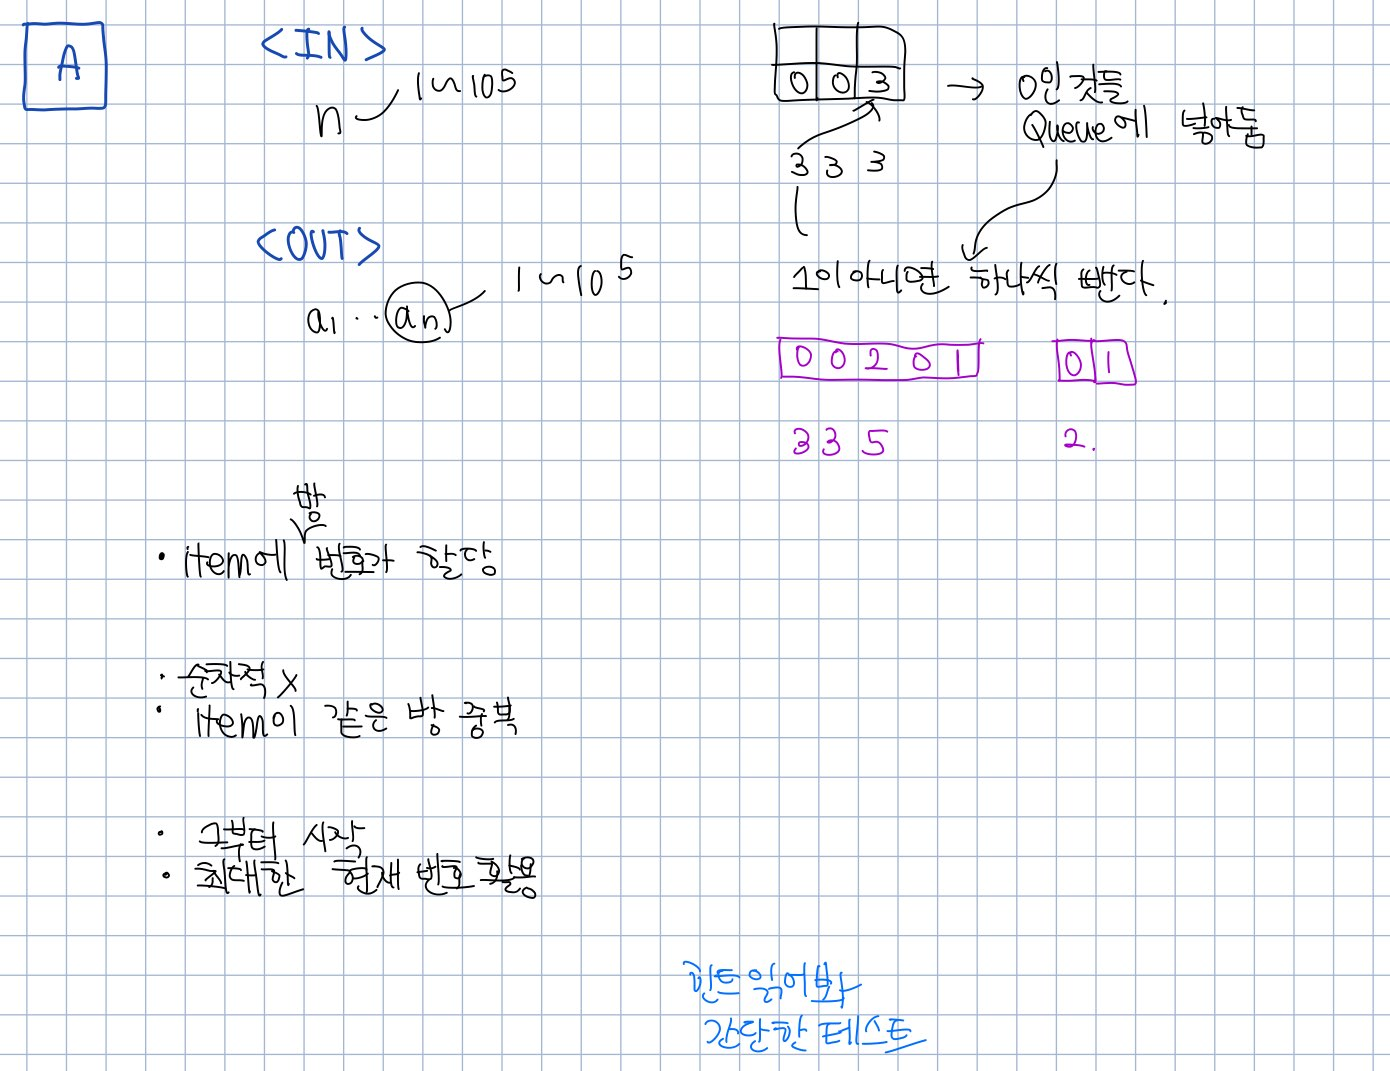 A
<IN>
n
1~10⁵
<OUT>
a₁ ·· aₙ
1~10⁵
방
· item에 번호가 할당
· 순차적 X
· item이 같은 방 중복
· 그부터 시작
· 최대한 현재 번호 활용
0 0 3
→ 0인 것들
Queue에 넣어둠
3 3 3
1이 아니면 하나씩 뺀다.
0 0 2 0 1
0 1
3 3 5
2.
힌트 읽어봐
간단한 테스트